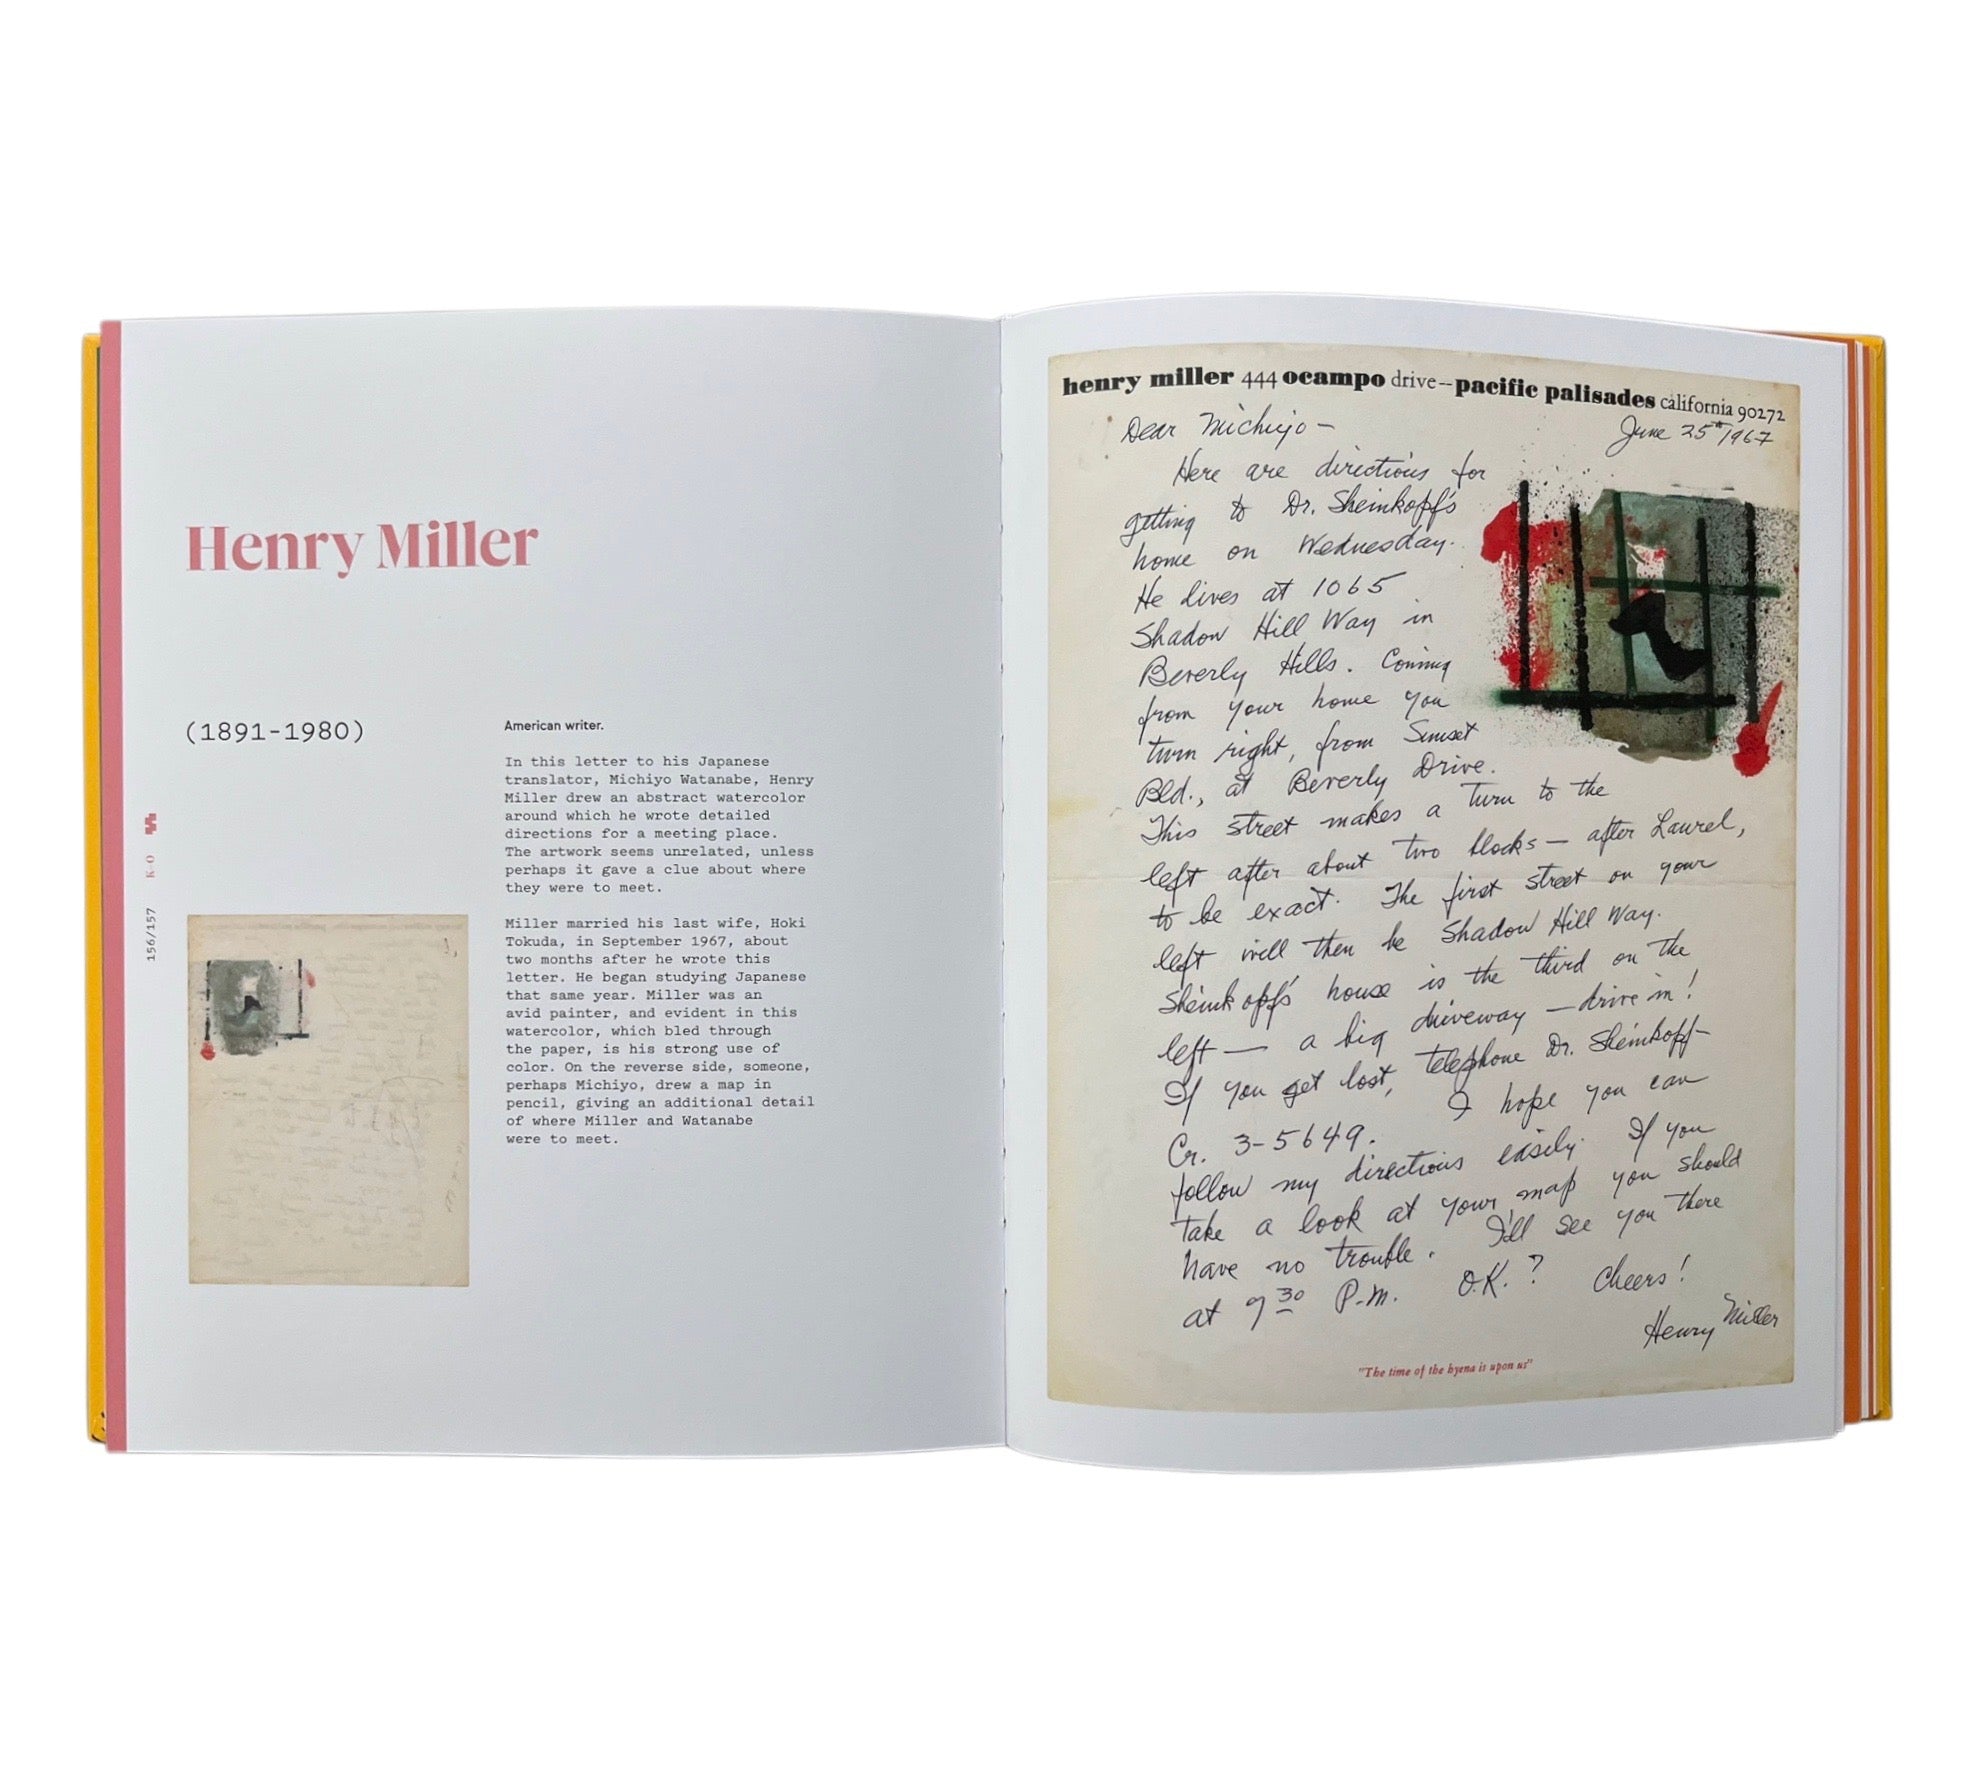 Henry Miller
(1891-1980)
American writer.
In this letter to his Japanese
translator, Michiyo Watanabe, Henry
Miller drew an abstract watercolor
around which he wrote detailed
directions for a meeting place.
The artwork seems unrelated, unless
perhaps it gave a clue about where
they were to meet.
Miller married his last wife, Hoki
Tokuda, in September 1967, about
two months after he wrote this
letter. He began studying Japanese
that same year. Miller was an
avid painter, and evident in this
watercolor, which bled through
the paper, is his strong use of
color. On the reverse side, someone,
perhaps Michiyo, drew a map in
pencil, giving an additional detail
of where Miller and Watanabe
were to meet.
156/157 K-O
henry miller 444 ocampo drive—pacific palisades california 90272
June 25th 1967
Dear Michiyo —
Here are directions for
getting to Dr. Sheinkopf's
home on Wednesday.
He lives at 1065
Shadow Hill Way in
Beverly Hills. Coming
from your home you
turn right, from Sunset
Bld., at Beverly Drive.
This street makes a turn to the
left after about two blocks — after Laurel,
to be exact. The first street on your
left will then be Shadow Hill Way.
Sheinkopf's house is the third on the
left — a big driveway — drive in!
If you get lost, telephone Dr. Sheinkopf —
Cr. 3-5649. I hope you can
follow my directions easily. If you
take a look at your map you should
have no trouble. I'll see you there
at 9 30 P.M. O.K.? Cheers!
Henry Miller
"The time of the hyena is upon us"